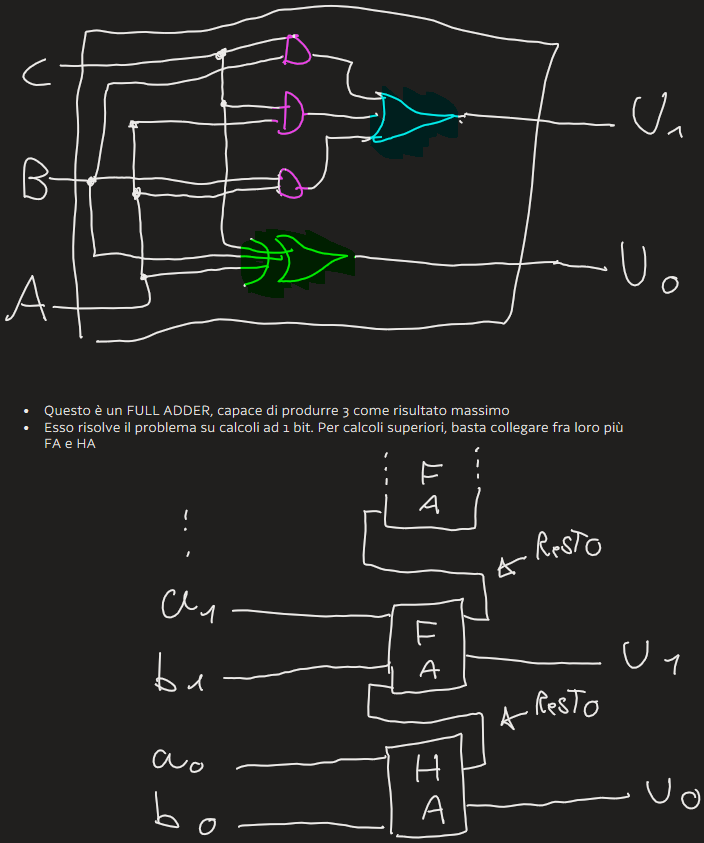 C
U1
B
U0
A
• Questo è un FULL ADDER, capace di produrre 3 come risultato massimo
• Esso risolve il problema su calcoli ad 1 bit. Per calcoli superiori, basta collegare fra loro più
FA e HA
F
A
ReSTO
a1
F
A
U1
b1
ReSTO
a0
H
A
U0
b0